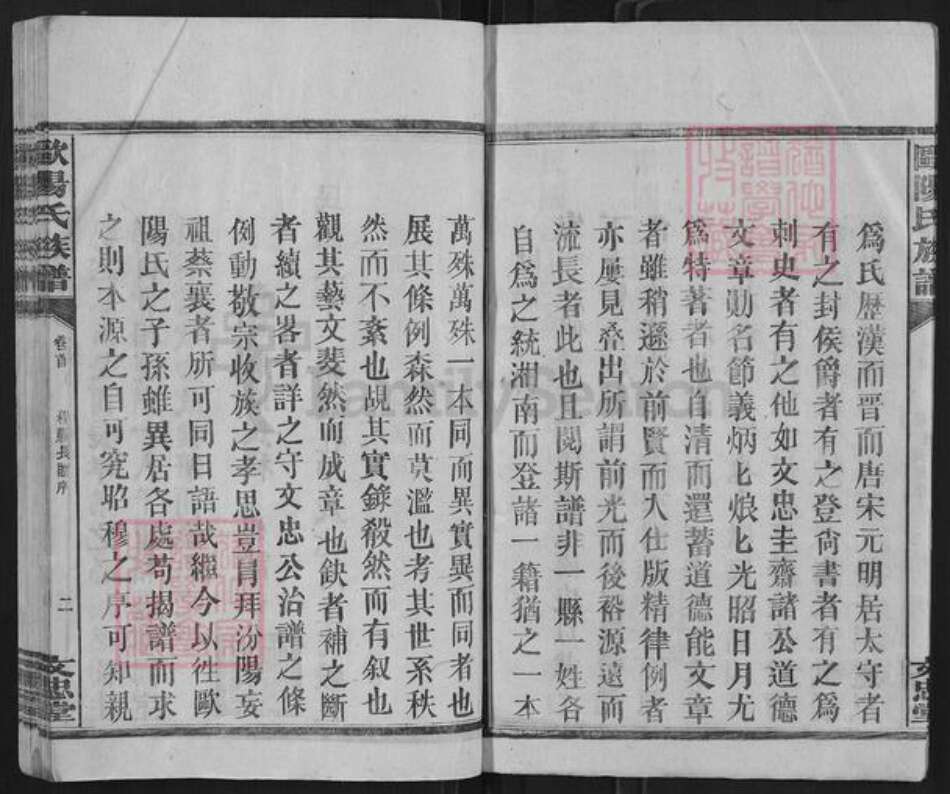 歐陽氏族譜
爲氏歷漢而晋而唐宋元明居太守者
有之封侯爵者有之登尙書者有之爲
刺史者有之他如文忠圭齋諸公道德
文章勛名節義炳匕烺匕光昭日月尤
爲特著者也自清而還蓄道德能文章
者雖稍遜於前賢而入仕版精律例者
亦屢見叠出所謂前光而後裕源遠而
流長者此也且閱斯譜非一縣一姓各
自爲之統湘南而登諸一籍猶之一本
文忠堂
萬殊萬殊一本同而異實異而同者也
展其條例森然而莫濫也考其世系秩
然而不紊也覘其實錄殺然而有叙也
觀其藝文斐然而成章也缺者補之斷
者續之畧者詳之守文忠公治譜之條
例動敬宗收族之孝思豈肎拜汾陽妄
祖蔡襄者所可同日語哉繼今以徃歐
陽氏之子孫雖異居各處苟揭譜而求
之則本源之自可究昭穆之序可知親
歐陽氏族譜
卷首
序
二
文忠堂
FamilySearch